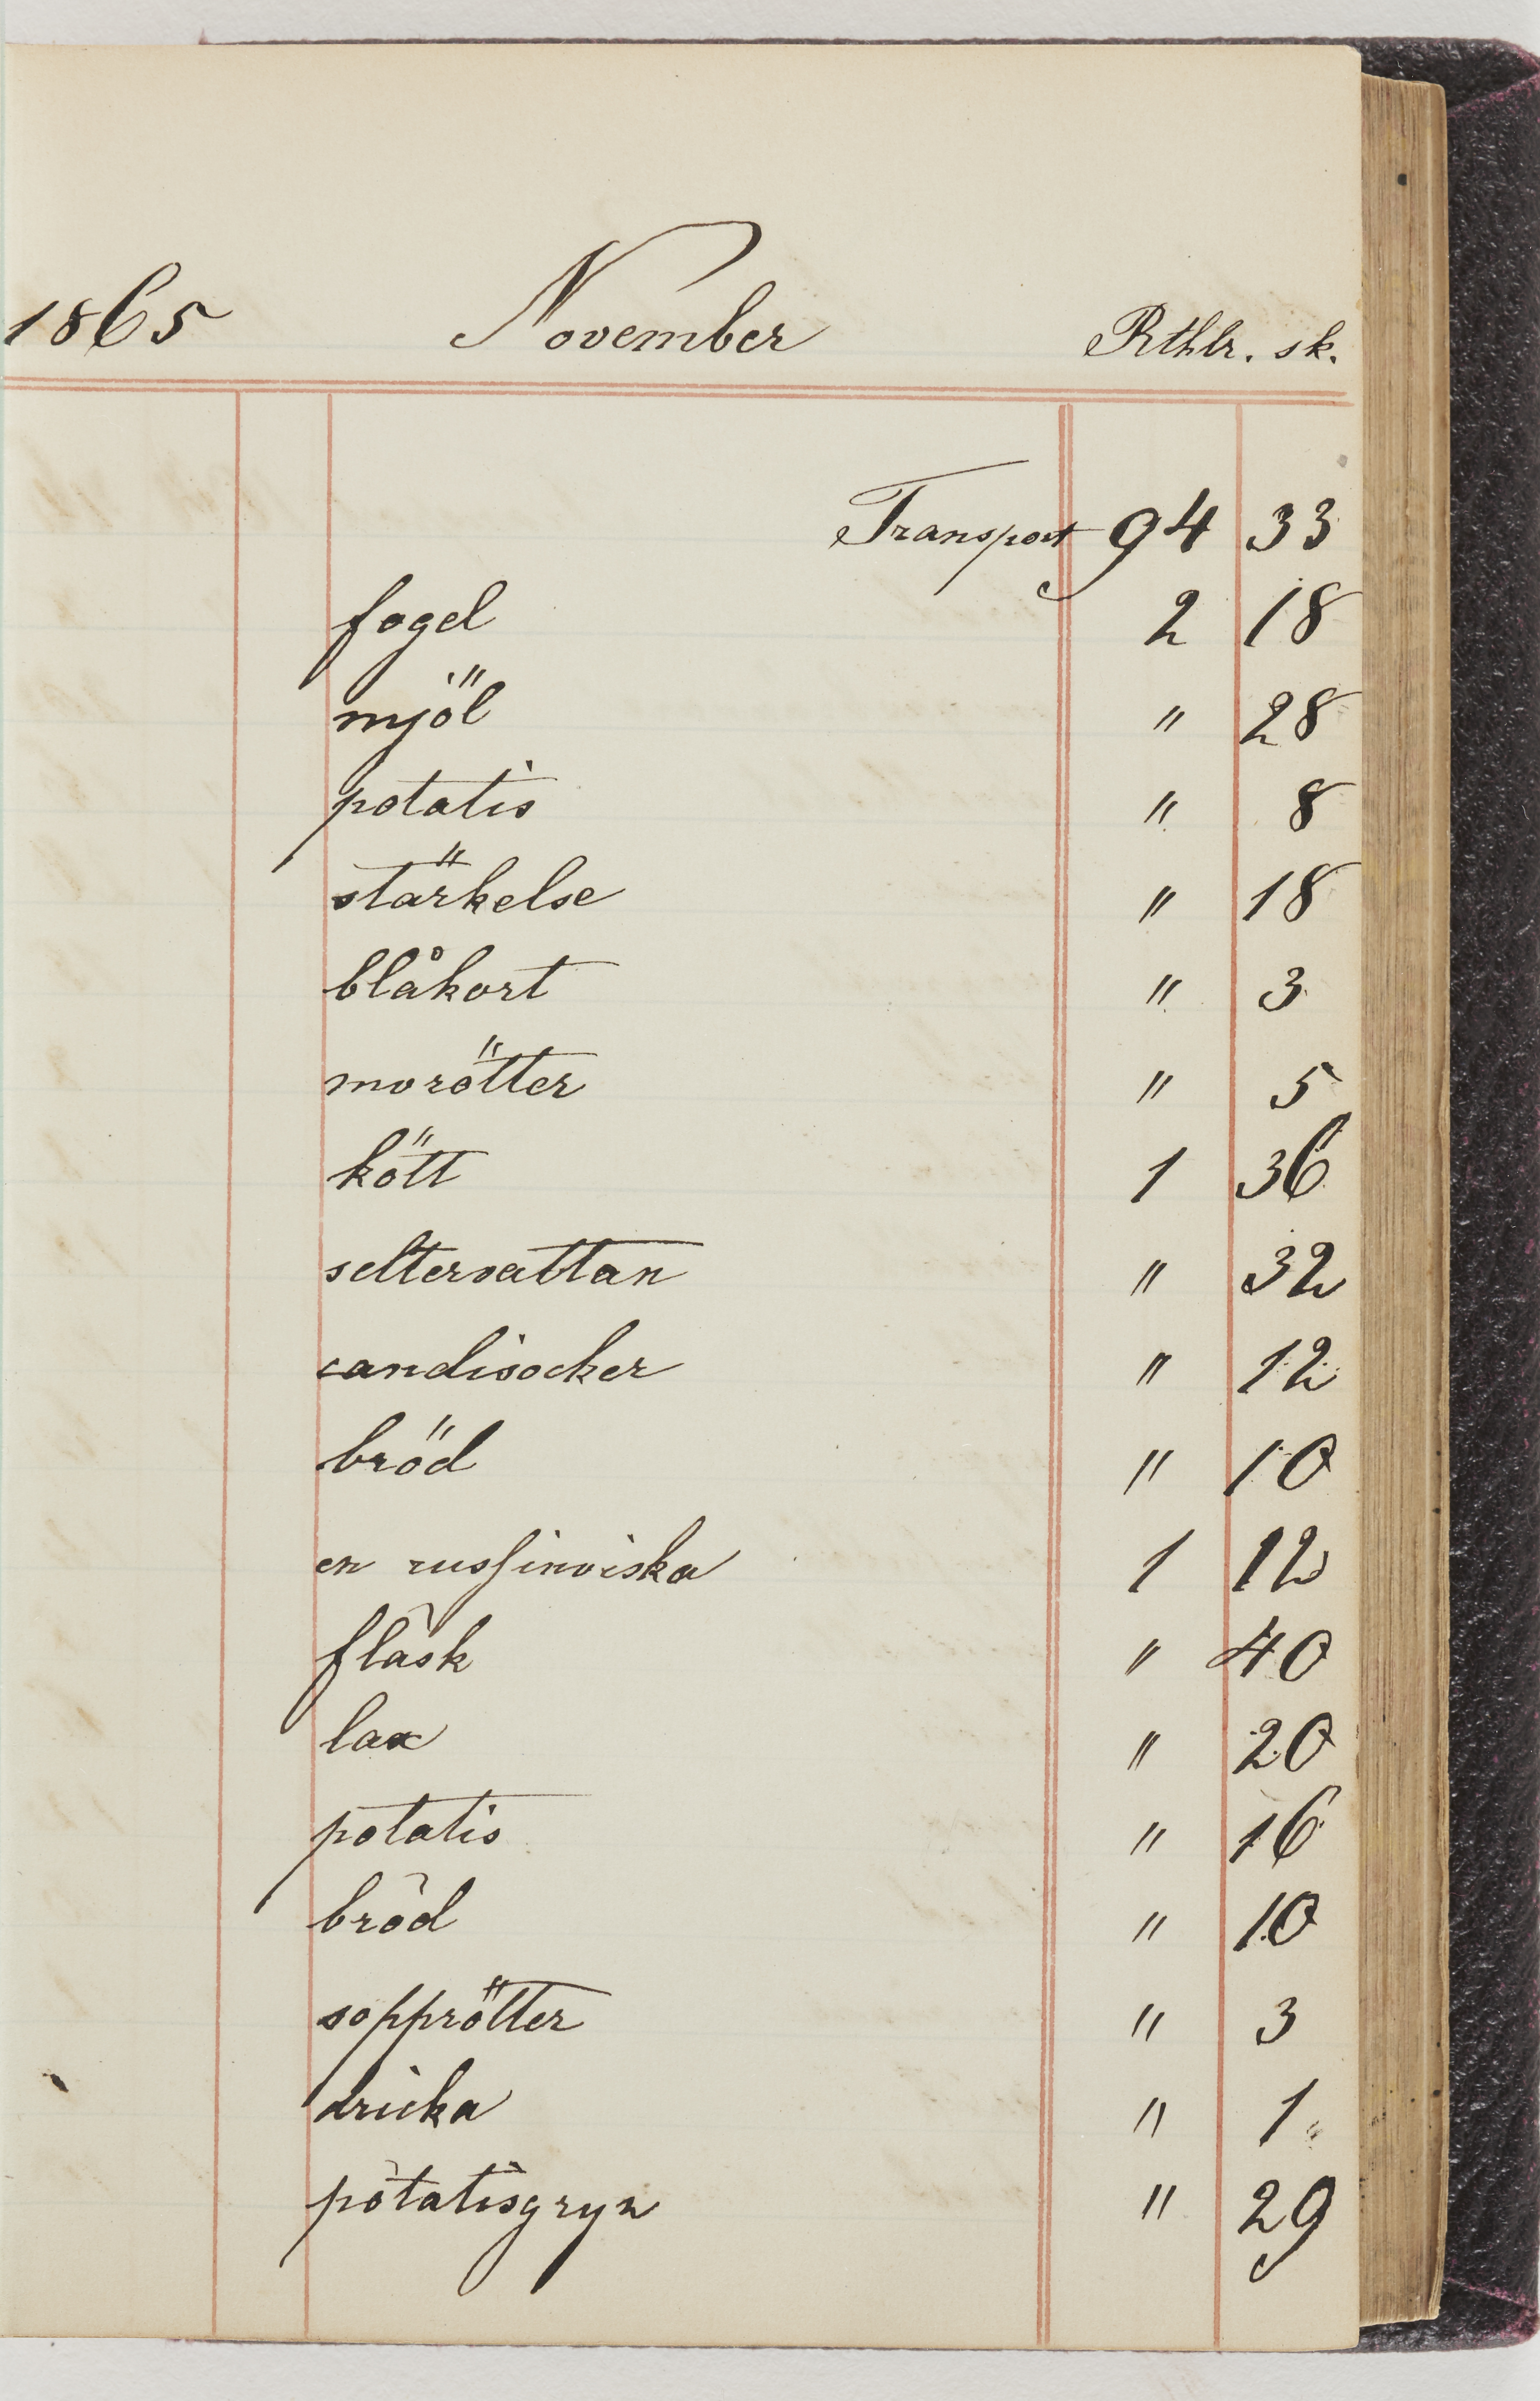 1865 November Rthlr. sk.
Transport 94 33
fogel 2 18
mjöl " 28
potatis " 8
stärkelse " 18
blåkort " 3
morötter " 5
kött 1 36
seltervattan " 32
candisocker " 12
bröd " 10
en russinviska 1 12
fläsk " 40
lax " 20
potatis " 16
bröd " 10
sopprötter " 3
dricka " 1
potatisgryn " 29